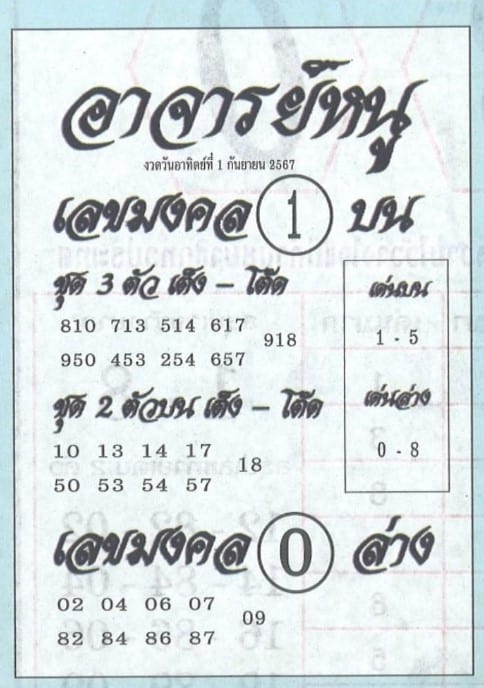 อาจารย์หนู
งวดวันอาทิตย์ที่ 1 กันยายน 2567
เลขมงคล 1 บน
ชุด 3 ตัว เต็ง – โต๊ด
810 713 514 617 918
950 453 254 657
เด่นบน
1 - 5
ชุด 2 ตัวบน เต็ง – โต๊ด
10 13 14 17 18
50 53 54 57
เด่นล่าง
0 - 8
เลขมงคล 0 ล่าง
02 04 06 07 09
82 84 86 87